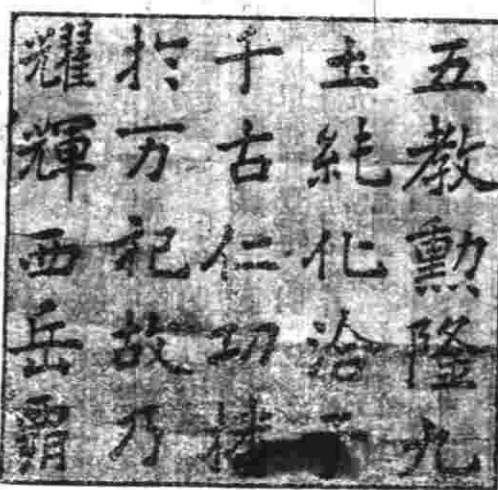 五教勳隆九
土純化洽
千古仁功播
於万祀故乃
耀輝西岳霸